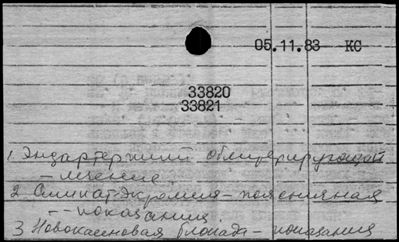 05.11.83 КС
33820
33821
1 Эндартериит облитерирующий
– лечение.
2. Симпатэктомия – поясничная
– показания.
3 Новокаиновая блокада – показания